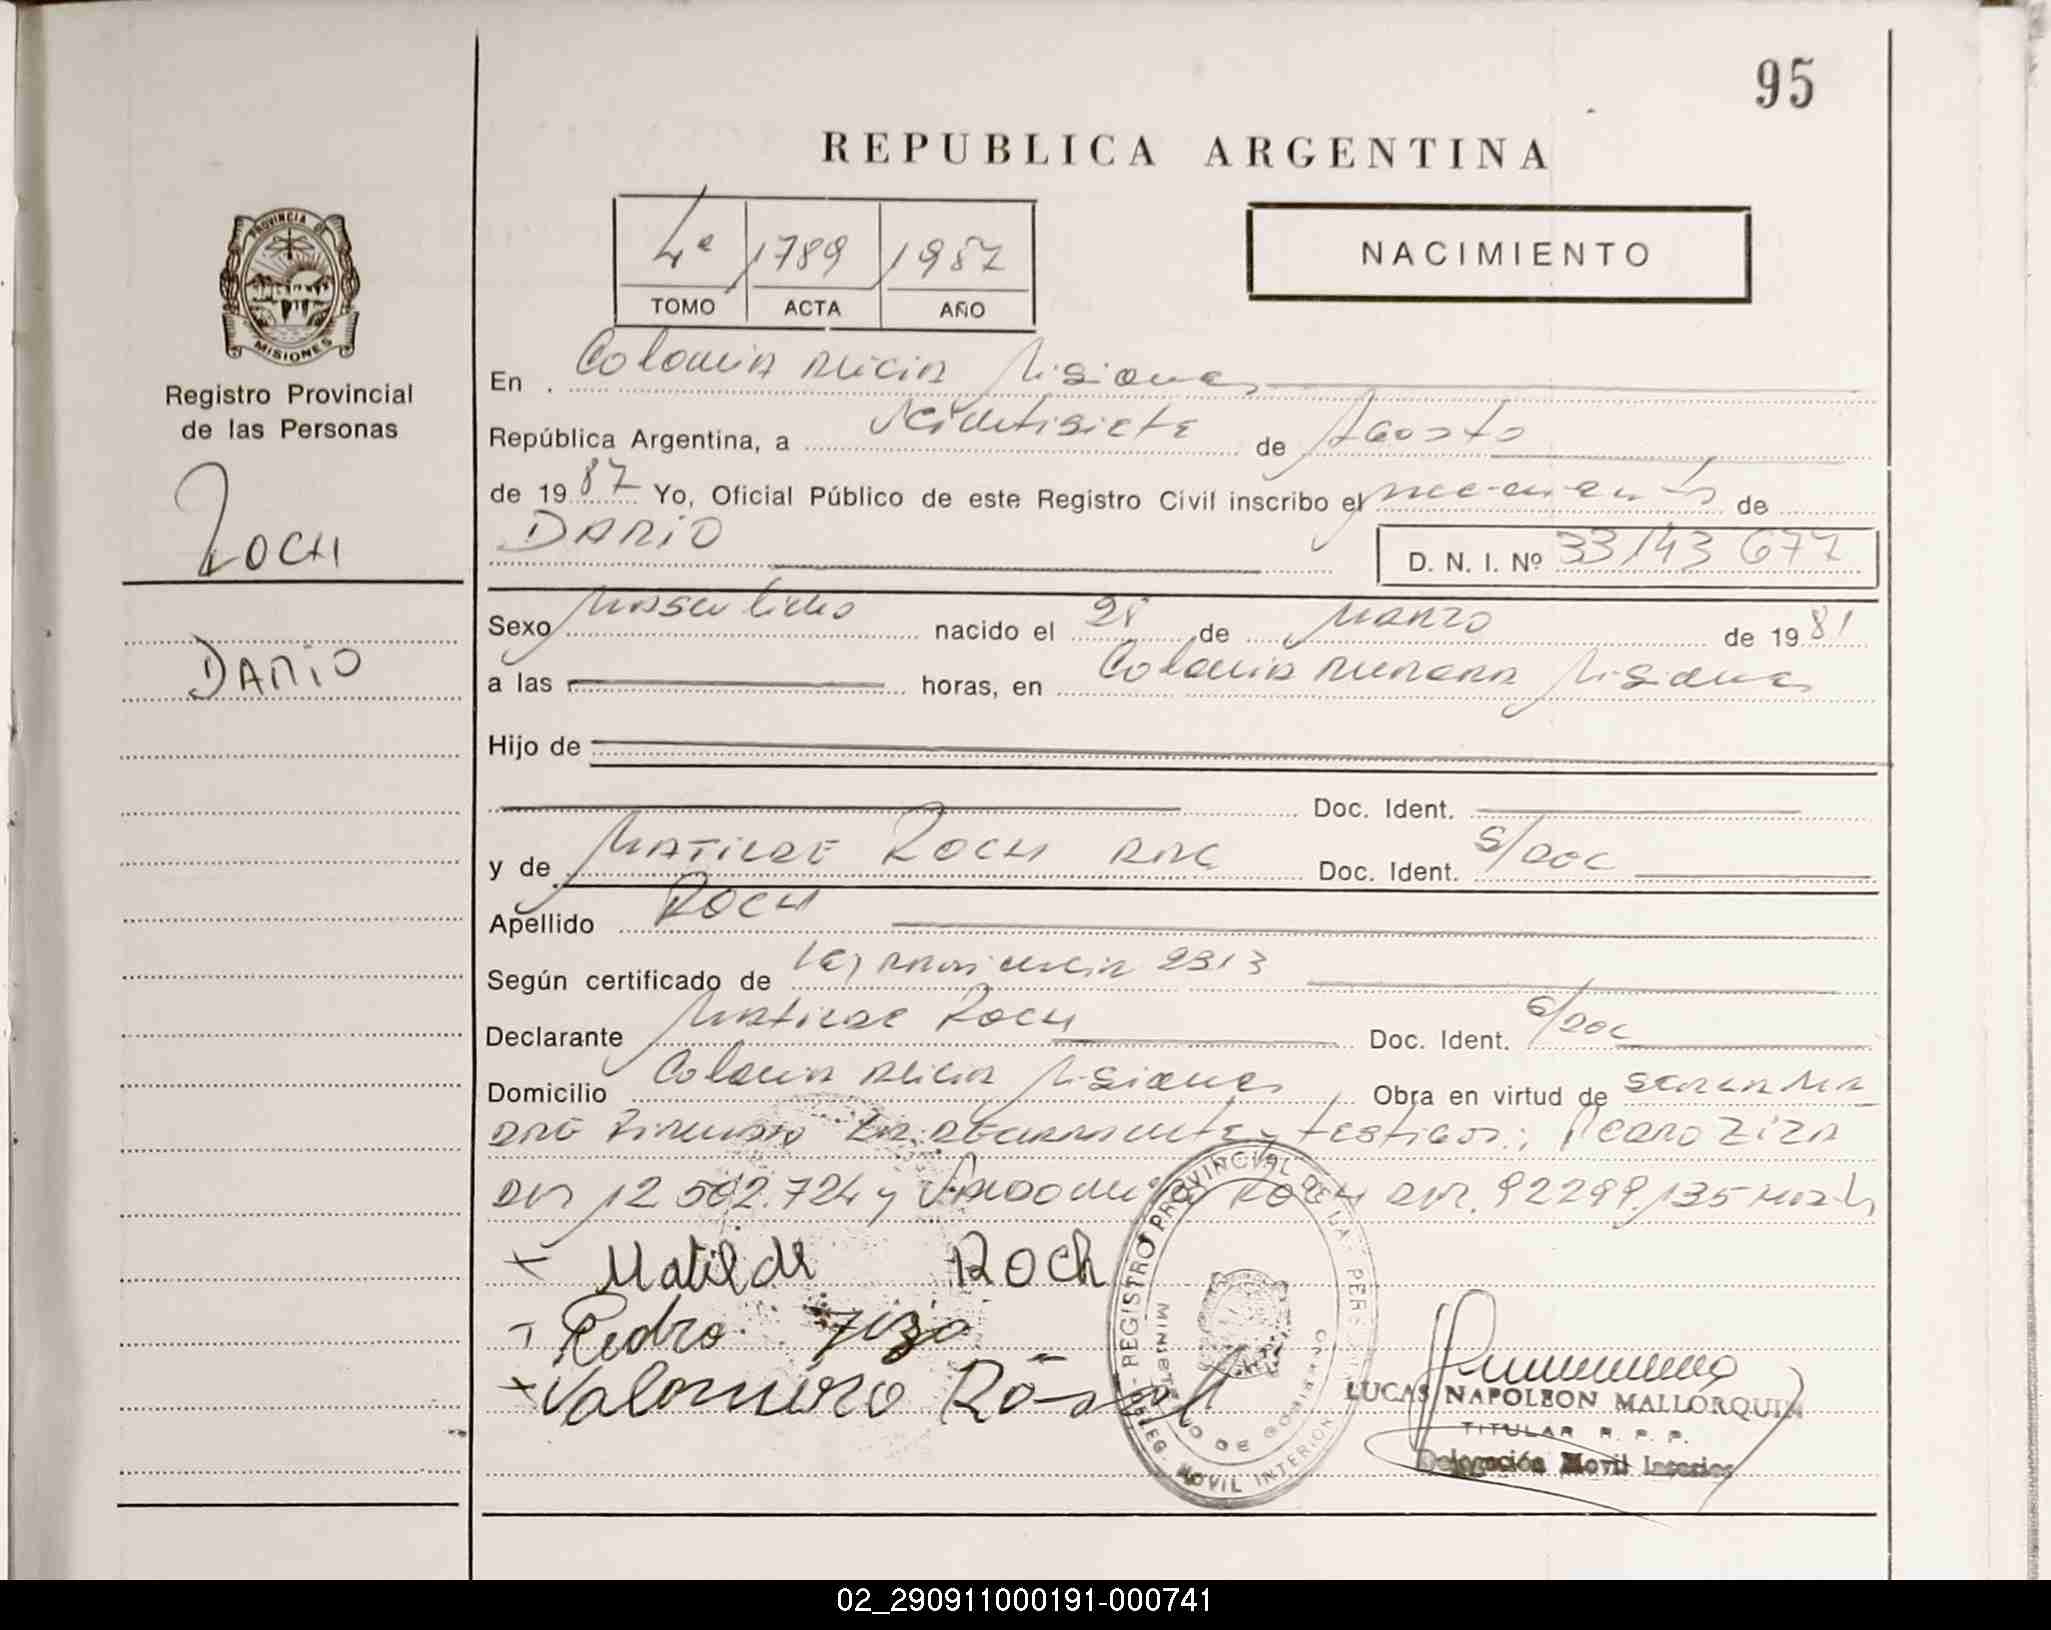 95
REPUBLICA ARGENTINA
4ª 1789 1987
TOMO ACTA AÑO
NACIMIENTO
PROVINCIA DE
MISIONES
Registro Provincial
de las Personas
ROCH
DARIO
En Colonia Alicia Misiones
República Argentina, a veintisiete de Agosto
de 1987 Yo, Oficial Público de este Registro Civil inscribo el nacimiento de
DARIO D. N. I. Nº 33143677
Sexo Masculino nacido el 28 de Marzo de 1981
a las horas, en Colonia Aurora Misiones
Hijo de
Doc. Ident.
y de MATILDE ROCH ARG Doc. Ident. S/DOC
Apellido ROCH
Según certificado de Ley Provincia 2313
Declarante Matilde Roch Doc. Ident. S/DOC
Domicilio Colonia Alicia Misiones Obra en virtud de ser la Ma
dre Firmando la declarante y testigos: Pedro Ziza
DNI 12 502.724 y Valdomero Roch DNI. 92299.135
Matilde Roch
Pedro Ziza
Valomero Roch
REGISTRO PROVINCIAL DE LAS PERSONAS
MINISTERIO DE GOBIERNO
DELEG. MOVIL INTERIOR
LUCAS NAPOLEON MALLORQUIN
TITULAR R. P. P.
Delegación Movil Interior
02_290911000191-000741